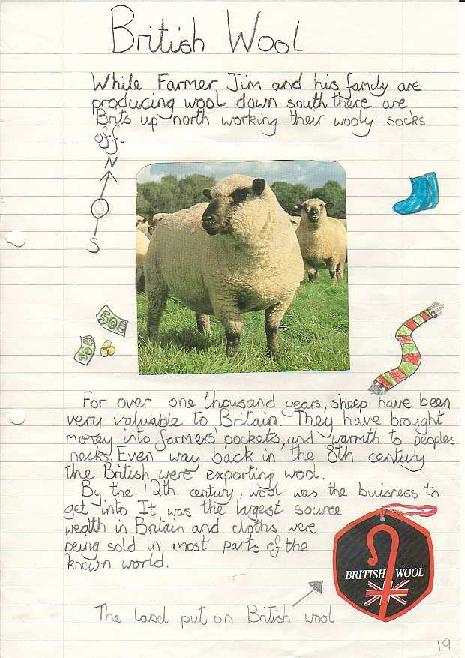 British Wool
While Farmer Jim and his family are
producing wool down south there are
Brits up north working their wooly socks
off.
N
S
For over one thousand years, sheep have been
very valuable to Britain. They have brought
money into farmers' pockets, and warmth to peoples
necks! Even way back in the 8th century
the British were exporting wool.
By the 12th century, wool was the buisness to
get into It was the largest source
wealth in Britain and cloths were
being sold in most parts of the
known world.
BRITISH WOOL
The label put on British wool
19